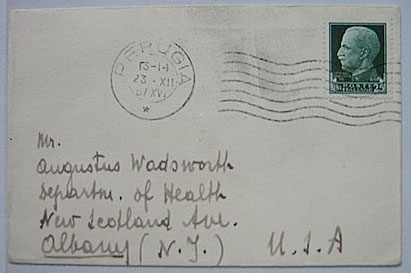 PERUGIA
13-14
23 · XII
37 XVI
*
Mr.
Augustus Wadsworth
Departm. of Health
New Scotland Ave.
Albany (N.J.) U.S.A